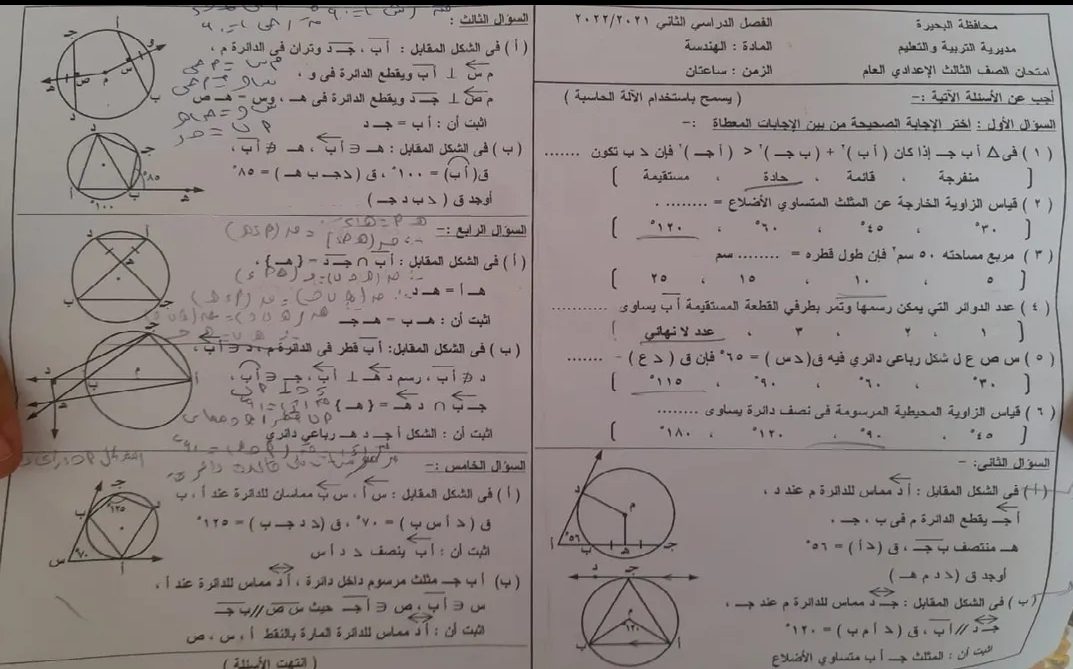 محافظة البحيرة
مديرية التربية والتعليم
امتحان الصف الثالث الإعدادي العام
الفصل الدراسي الثاني ٢٠٢٢/٢٠٢١
المادة : الهندسة
الزمن : ساعتان
أجب عن الأسئلة الآتية :-
( يسمح باستخدام الآلة الحاسبة )
السؤال الأول : اختر الإجابة الصحيحة من بين الإجابات المعطاة :-
( ١ ) فى Δ أ ب جـ إذا كان ( أ ب )٢ + ( ب جـ )٢ > ( أ جـ )٢ فإن د ب تكون .......
[ منفرجة ، قائمة ، حادة ، مستقيمة ]
( ٢ ) قياس الزاوية الخارجة عن المثلث المتساوي الأضلاع = ........ .
[ ٣٠° ، ٤٥° ، ٦٠° ، ١٢٠° ]
( ٣ ) مربع مساحته ٥٠ سم٢ فإن طول قطره = ........ سم
[ ٥ ، ١٠ ، ١٥ ، ٢٥ ]
( ٤ ) عدد الدوائر التي يمكن رسمها وتمر بطرفي القطعة المستقيمة أ ب يساوى ...........
[ ١ ، ٢ ، ٣ ، عدد لا نهائي ]
( ٥ ) س ص ع ل شكل رباعى دائري فيه ق(د س) = ٦٥° فإن ق ( د ع ) = .......
[ ٣٠° ، ٦٠° ، ٩٠° ، ١١٥° ]
( ٦ ) قياس الزاوية المحيطية المرسومة فى نصف دائرة يساوى ........
[ ٤٥° ، ٩٠° ، ١٢٠° ، ١٨٠° ]
السؤال الثانى: -
( أ ) فى الشكل المقابل : أ د مماس للدائرة م عند د ،
أ جـ يقطع الدائرة م فى ب ، جـ ،
هـ منتصف ب جـ ، ق (د أ) = ٥٦°
أوجد ق ( د د م هـ )
( ب ) فى الشكل المقابل : جـ د مماس للدائرة م عند جـ ،
جـ د // أ ب ، ق ( د أ م ب ) = ١٢٠°
اثبت أن : المثلث جـ أ ب متساوي الأضلاع
السؤال الثالث :
( أ ) فى الشكل المقابل : أ ب ، جـ د وتران فى الدائرة م ،
م س ⊥ أ ب ويقطع الدائرة فى و ،
م ص ⊥ جـ د ويقطع الدائرة فى هـ ، و س = هـ ص
اثبت أن : أ ب = جـ د
( ب ) فى الشكل المقابل : هـ ∈ أ ب ، هـ ∉ أ ب ،
ق( أ ب ) = ١٠٠° ، ق ( د جـ ب هـ ) = ٨٥°
أوجد ق ( د ب د جـ )
السؤال الرابع :-
( أ ) فى الشكل المقابل : أ ب ∩ جـ د = { هـ } ،
هـ أ = هـ د
اثبت أن : هـ ب = هـ جـ
( ب ) فى الشكل المقابل: أ ب قطر فى الدائرة م ، د ∈ أ ب ،
د ∉ أ ب ، رسم د هـ ⊥ أ ب ، جـ ∈ أ ب ،
جـ ب ∩ د هـ = { هـ }
اثبت أن : الشكل أ جـ د هـ رباعي دائري
السؤال الخامس :-
( أ ) فى الشكل المقابل : س أ ، س ب مماسان للدائرة عند أ ، ب
ق ( د أ س ب ) = ٧٠° ، ق ( د د جـ ب ) = ١٢٥°
اثبت أن : أ ب ينصف د د أ س
(ب) أ ب جـ مثلث مرسوم داخل دائرة ، أ د مماس للدائرة عند أ ،
س ∈ أ ب ، ص ∈ أ جـ حيث س ص // ب جـ
اثبت أن : أ د مماس للدائرة المارة بالنقط أ ، س ، ص
( انتهت الأسئلة )